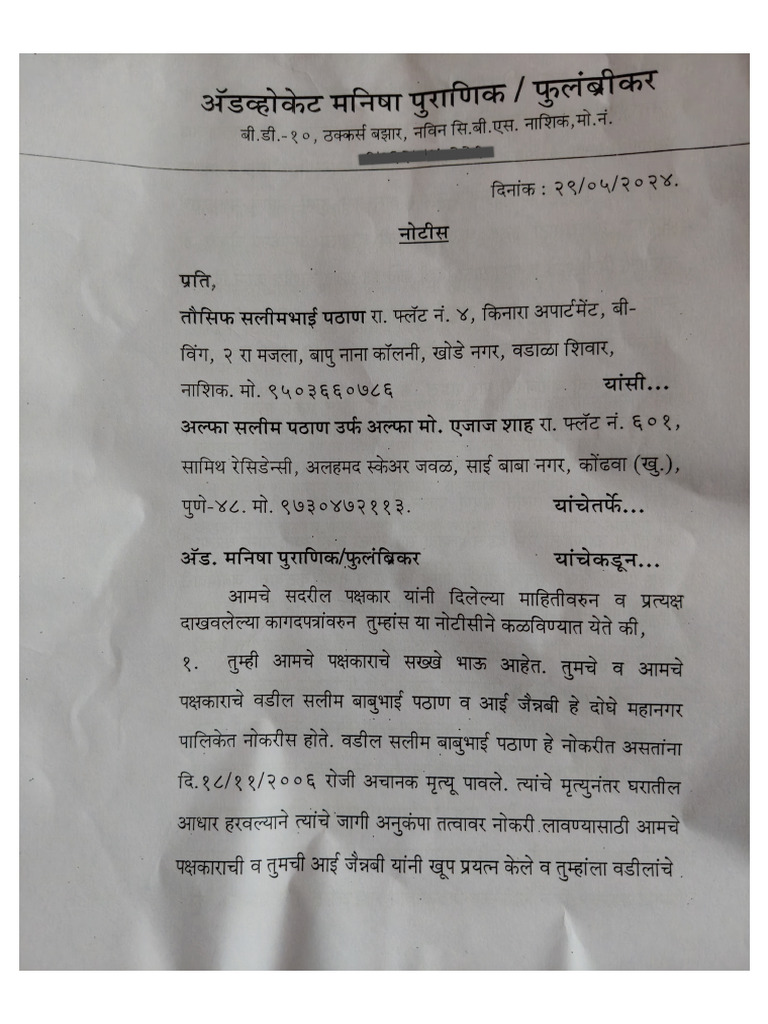 ॲडव्होकेट मनिषा पुराणिक / फुलंब्रीकर
बी.डी.-१०, ठक्कर्स बझार, नविन सि.बी.एस. नाशिक,मो.नं.
दिनांक : २९/०५/२०२४.
नोटीस
प्रति,
तौसिफ सलीमभाई पठाण रा. फ्लॅट नं. ४, किनारा अपार्टमेंट, बी-
विंग, २ रा मजला, बापु नाना कॉलनी, खोडे नगर, वडाळा शिवार,
नाशिक. मो. ९५०३६६०७८६ यांसी...
अल्फा सलीम पठाण उर्फ अल्फा मो. एजाज शाह रा. फ्लॅट नं. ६०१,
सामिथ रेसिडेन्सी, अलहमद स्केअर जवळ, साई बाबा नगर, कोंढवा (खु.),
पुणे-४८. मो. ९७३०४७२११३. यांचेतर्फे...
ॲड. मनिषा पुराणिक/फुलंब्रिकर यांचेकडून...
आमचे सदरील पक्षकार यांनी दिलेल्या माहितीवरुन व प्रत्यक्ष
दाखवलेल्या कागदपत्रांवरुन तुम्हांस या नोटीसीने कळविण्यात येते की,
१. तुम्ही आमचे पक्षकाराचे सख्खे भाऊ आहेत. तुमचे व आमचे
पक्षकाराचे वडील सलीम बाबुभाई पठाण व आई जैन्नबी हे दोघे महानगर
पालिकेत नोकरीस होते. वडील सलीम बाबुभाई पठाण हे नोकरीत असतांना
दि.१८/११/२००६ रोजी अचानक मृत्यू पावले. त्यांचे मृत्युनंतर घरातील
आधार हरवल्याने त्यांचे जागी अनुकंपा तत्वावर नोकरी लावण्यासाठी आमचे
पक्षकाराची व तुमची आई जैन्नबी यांनी खूप प्रयत्न केले व तुम्हांला वडीलांचे